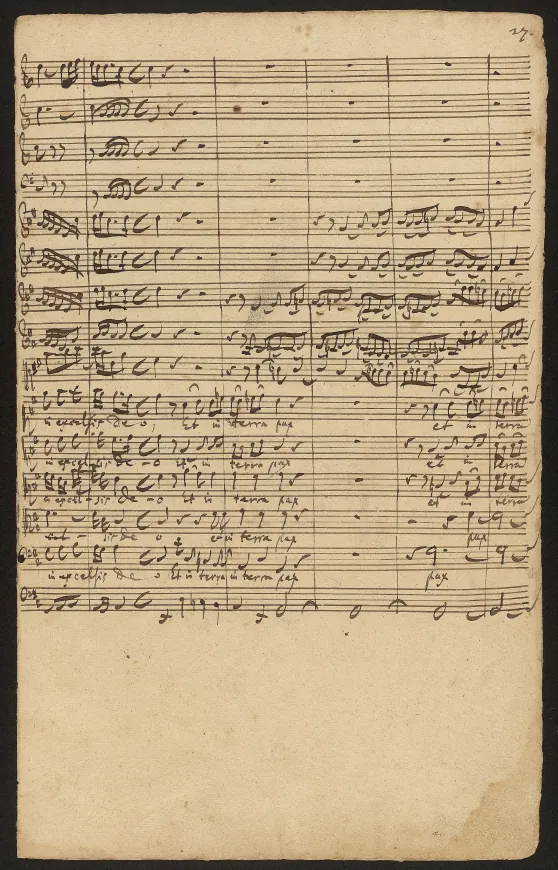 27.
in excelsis de o, Et in terra pax et in terra
in excelsis de - o Et in terra pax et in terra
in excel - sis de - o et in terra pax et in terra
sis de o et in terra pax pax
in excelsis de o Et in terra in terra pax pax